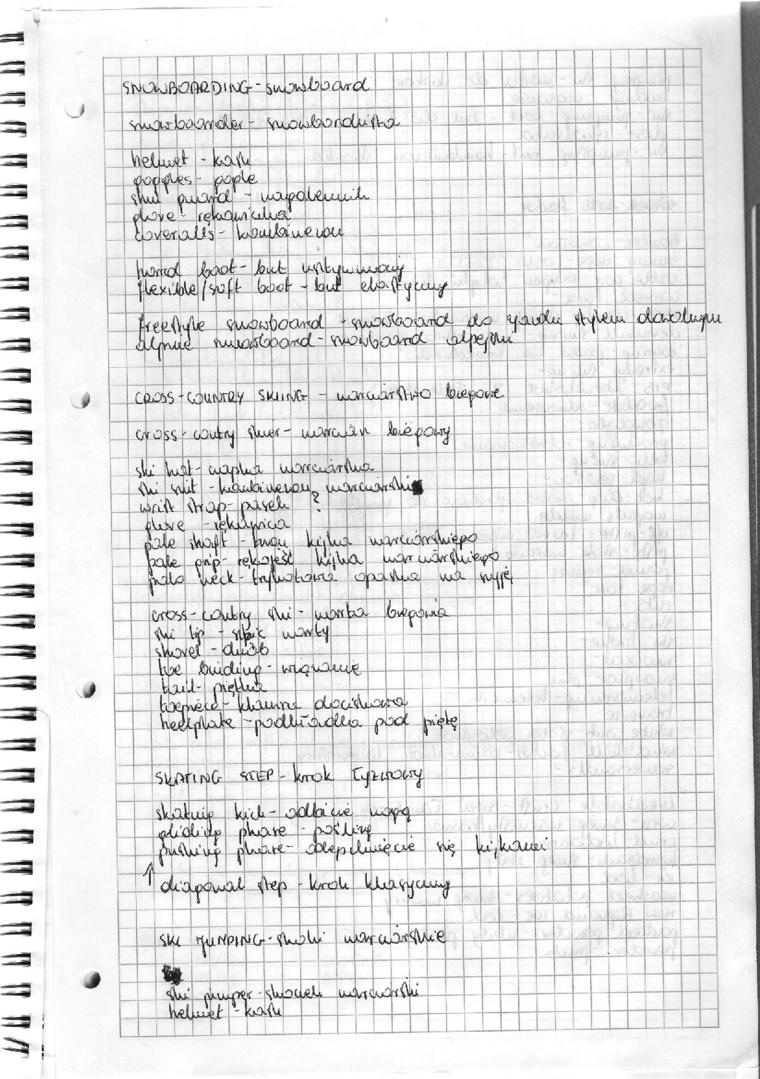 SNOWBOARDING - snowboard
snowboarder - snowbordzistka
helmet - kask
goggles - gogle
shin guard - nagolennik
glove - rękawiczka
coveralls - kombinezon
hard boot - but usztywniony
flexible/soft boot - but elastyczny
freestyle snowboard - snowboard do zjazdu stylem dowolnym
alpine snowboard - snowboard alpejski
CROSS-COUNTRY SKIING - narciarstwo biegowe
cross-coutry skier - narciarz biegowy
ski hat - czapka narciarska
ski suit - kombinezon narciarski
wrist strap - pasek ?
glove - rękawica
pole shaft - kijka narciarskiego
pole grip - rękojeść kijka narciarskiego
polo neck - trykotowa opaska na szyję
cross-coutry ski - narta biegowa
ski tip - szpic narty
shovel - dziób
toe binding - wiązanie
tail - piętka
toepiece - klamra dociskowa
heelplate - podkładka pod piętę
SKATING STEP - krok łyżwowy
skating kick - odbicie nogą
gliding phase - poślizg
pushing phase - odepchnięcie się kijkami
↑ diagonal step - krok klasyczny
SKI JUMPING - skoki narciarskie
ski jumper - skoczek narciarski
helmet - kask